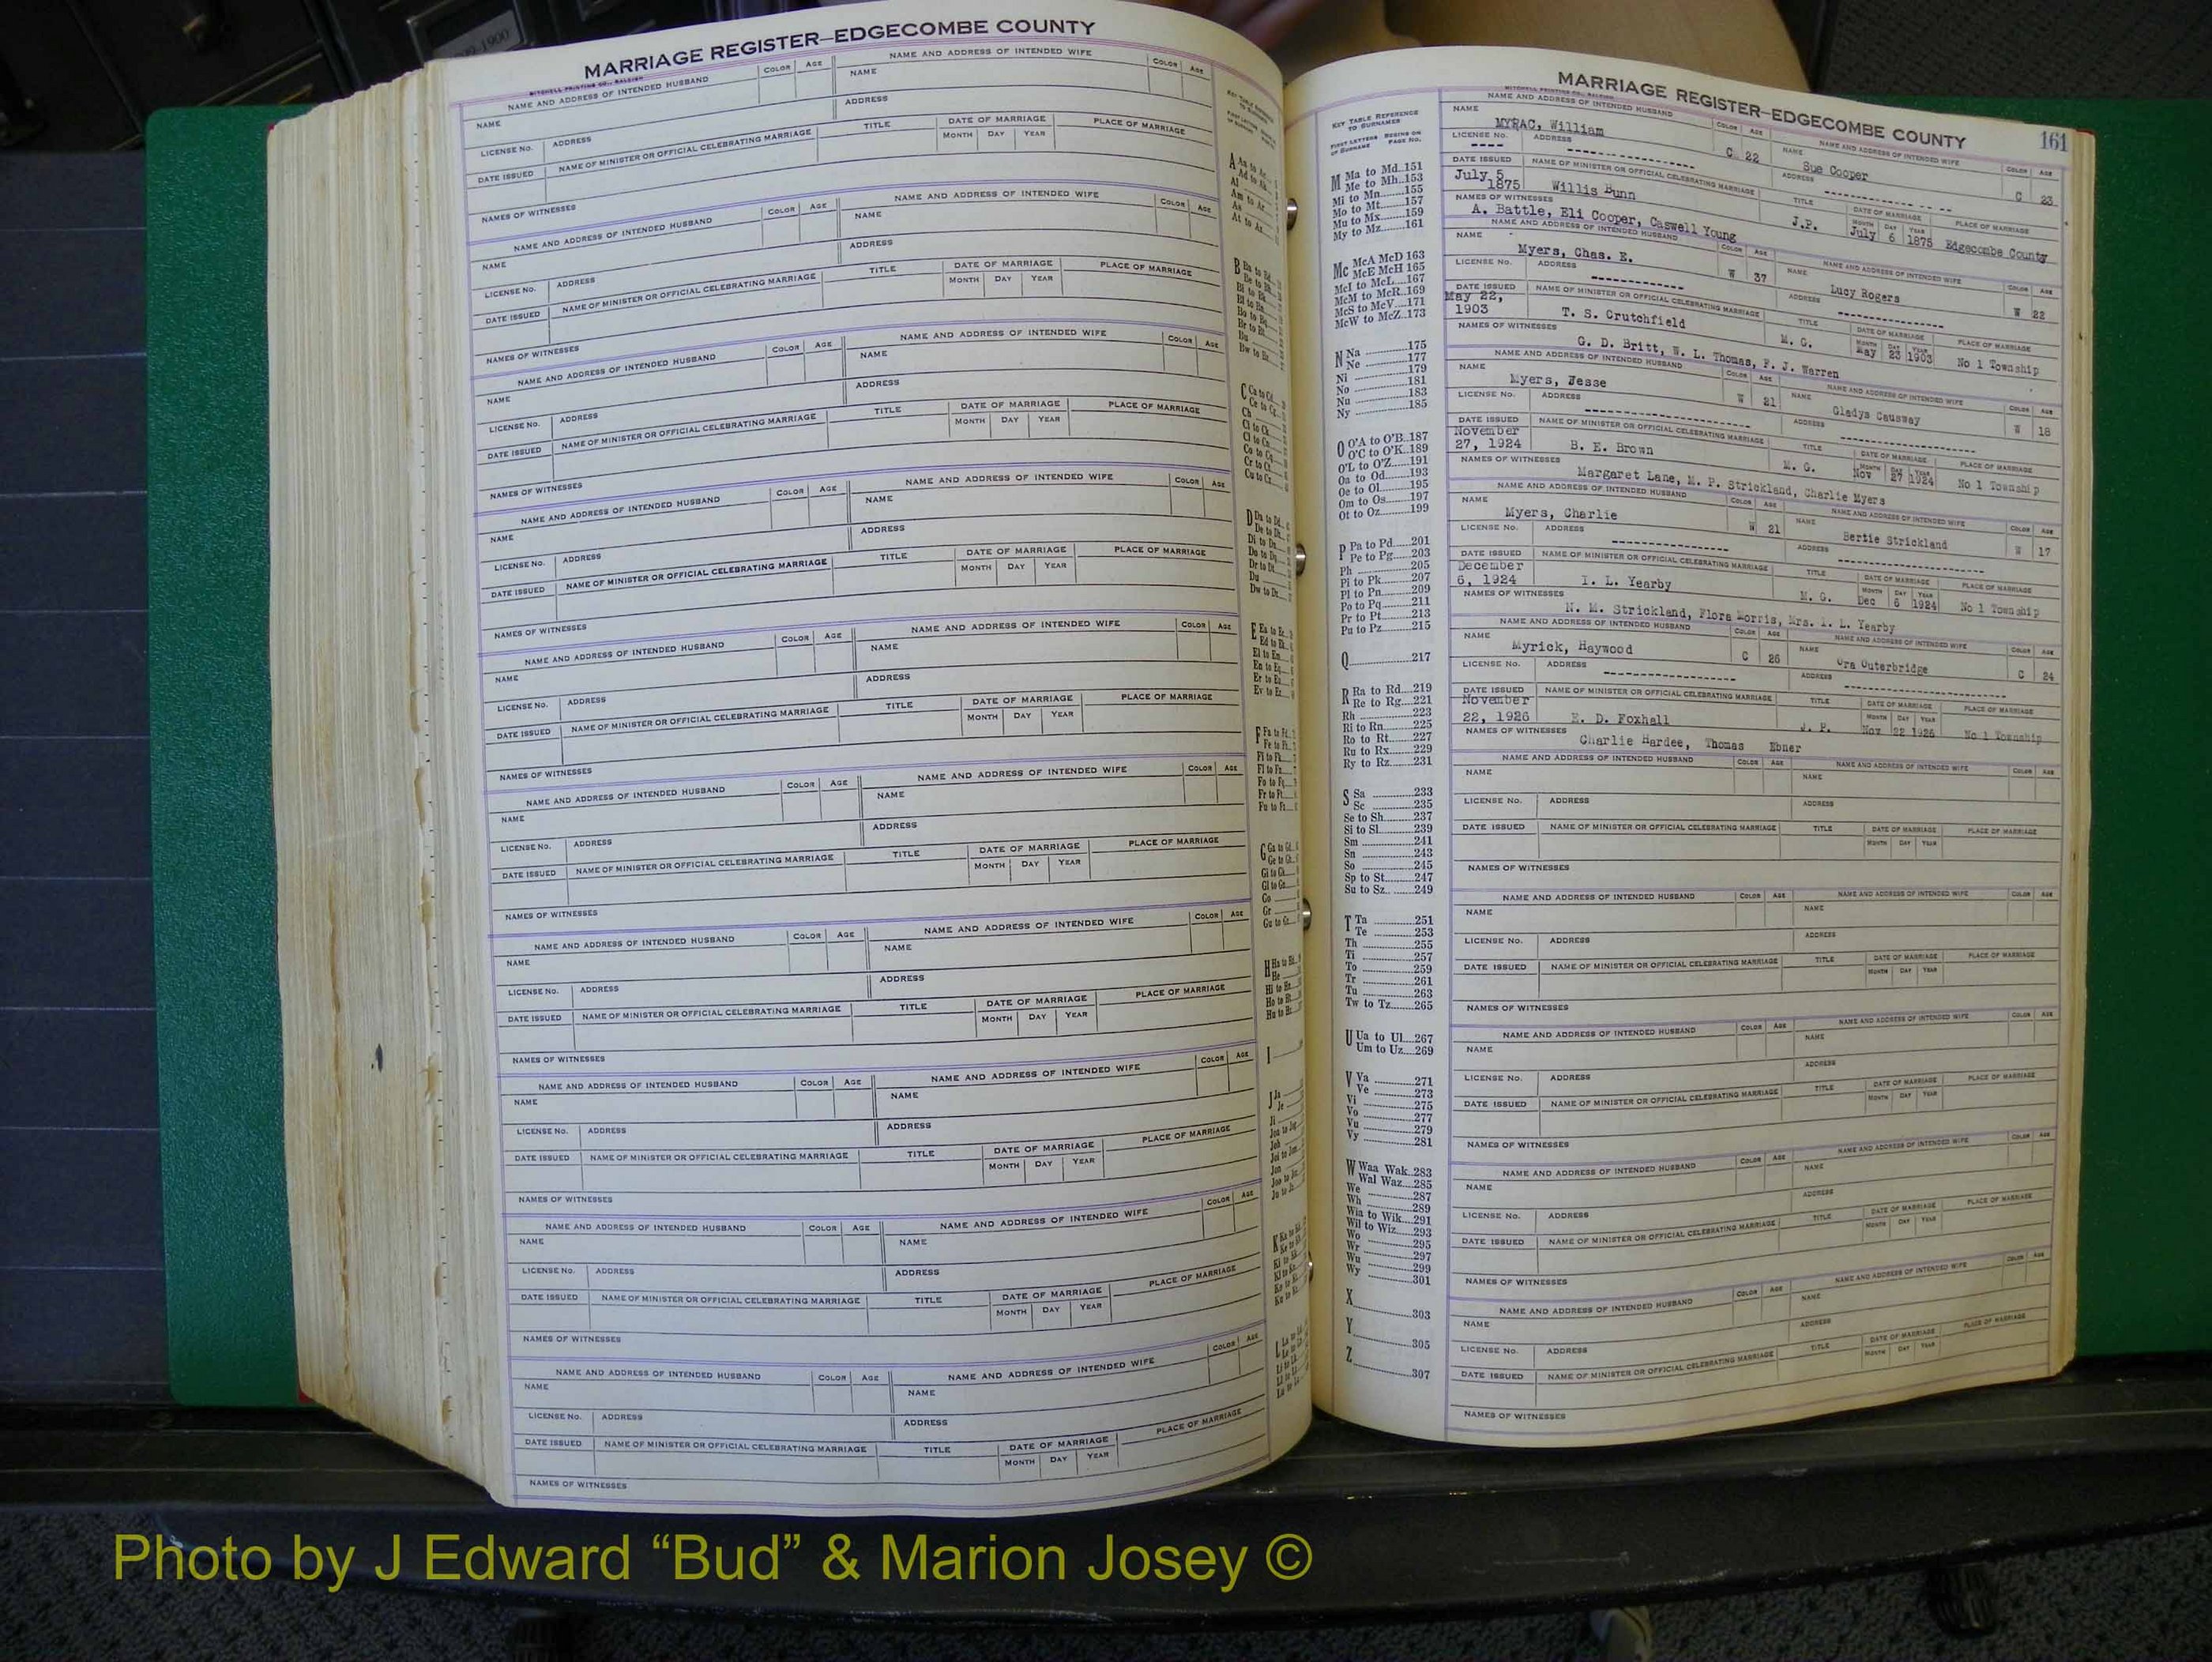 00-1900
MARRIAGE REGISTER–EDGECOMBE COUNTY
MITCHELL PRINTING CO., RALEIGH
NAME AND ADDRESS OF INTENDED HUSBAND COLOR AGE NAME AND ADDRESS OF INTENDED WIFE COLOR AGE
NAME NAME
LICENSE No. ADDRESS ADDRESS
DATE ISSUED NAME OF MINISTER OR OFFICIAL CELEBRATING MARRIAGE TITLE DATE OF MARRIAGE PLACE OF MARRIAGE
MONTH DAY YEAR
NAMES OF WITNESSES
NAME AND ADDRESS OF INTENDED HUSBAND COLOR AGE NAME AND ADDRESS OF INTENDED WIFE COLOR AGE
NAME NAME
LICENSE No. ADDRESS ADDRESS
DATE ISSUED NAME OF MINISTER OR OFFICIAL CELEBRATING MARRIAGE TITLE DATE OF MARRIAGE PLACE OF MARRIAGE
MONTH DAY YEAR
NAMES OF WITNESSES
NAME AND ADDRESS OF INTENDED HUSBAND COLOR AGE NAME AND ADDRESS OF INTENDED WIFE COLOR AGE
NAME NAME
LICENSE No. ADDRESS ADDRESS
DATE ISSUED NAME OF MINISTER OR OFFICIAL CELEBRATING MARRIAGE TITLE DATE OF MARRIAGE PLACE OF MARRIAGE
MONTH DAY YEAR
NAMES OF WITNESSES
NAME AND ADDRESS OF INTENDED HUSBAND COLOR AGE NAME AND ADDRESS OF INTENDED WIFE COLOR AGE
NAME NAME
LICENSE No. ADDRESS ADDRESS
DATE ISSUED NAME OF MINISTER OR OFFICIAL CELEBRATING MARRIAGE TITLE DATE OF MARRIAGE PLACE OF MARRIAGE
MONTH DAY YEAR
NAMES OF WITNESSES
NAME AND ADDRESS OF INTENDED HUSBAND COLOR AGE NAME AND ADDRESS OF INTENDED WIFE COLOR AGE
NAME NAME
LICENSE No. ADDRESS ADDRESS
DATE ISSUED NAME OF MINISTER OR OFFICIAL CELEBRATING MARRIAGE TITLE DATE OF MARRIAGE PLACE OF MARRIAGE
MONTH DAY YEAR
NAMES OF WITNESSES
NAME AND ADDRESS OF INTENDED HUSBAND COLOR AGE NAME AND ADDRESS OF INTENDED WIFE COLOR AGE
NAME NAME
LICENSE No. ADDRESS ADDRESS
DATE ISSUED NAME OF MINISTER OR OFFICIAL CELEBRATING MARRIAGE TITLE DATE OF MARRIAGE PLACE OF MARRIAGE
MONTH DAY YEAR
NAMES OF WITNESSES
NAME AND ADDRESS OF INTENDED HUSBAND COLOR AGE NAME AND ADDRESS OF INTENDED WIFE COLOR AGE
NAME NAME
LICENSE No. ADDRESS ADDRESS
DATE ISSUED NAME OF MINISTER OR OFFICIAL CELEBRATING MARRIAGE TITLE DATE OF MARRIAGE PLACE OF MARRIAGE
MONTH DAY YEAR
NAMES OF WITNESSES
NAME AND ADDRESS OF INTENDED HUSBAND COLOR AGE NAME AND ADDRESS OF INTENDED WIFE COLOR AGE
NAME NAME
LICENSE No. ADDRESS ADDRESS
DATE ISSUED NAME OF MINISTER OR OFFICIAL CELEBRATING MARRIAGE TITLE DATE OF MARRIAGE PLACE OF MARRIAGE
MONTH DAY YEAR
NAMES OF WITNESSES
NAME AND ADDRESS OF INTENDED HUSBAND COLOR AGE NAME AND ADDRESS OF INTENDED WIFE COLOR AGE
NAME NAME
LICENSE No. ADDRESS ADDRESS
DATE ISSUED NAME OF MINISTER OR OFFICIAL CELEBRATING MARRIAGE TITLE DATE OF MARRIAGE PLACE OF MARRIAGE
MONTH DAY YEAR
NAMES OF WITNESSES
NAME AND ADDRESS OF INTENDED HUSBAND COLOR AGE NAME AND ADDRESS OF INTENDED WIFE COLOR AGE
NAME NAME
LICENSE No. ADDRESS ADDRESS
DATE ISSUED NAME OF MINISTER OR OFFICIAL CELEBRATING MARRIAGE TITLE DATE OF MARRIAGE PLACE OF MARRIAGE
MONTH DAY YEAR
NAMES OF WITNESSES
KEY TABLE REFERENCE
TO SURNAMES
FIRST LETTERS OF SURNAME BEGINS ON PAGE NO.
M Ma to Md..151
Me to Mh..153
Mi to Mn......155
Mo to Mt......157
Mu to Mx......159
My to Mz......161
Mc McA McD 163
McE McH 165
McI to McL....167
McM to McR..169
McS to McV....171
McW to McZ..173
N Na ............175
Ne ............177
Ni ............179
No ............181
Nu ............183
Ny ............185
O O'A to O'B..187
O'C to O'K..189
O'L to O'Z......191
Oa to Od......193
Oe to Ol......195
Om to Os......197
Ot to Oz......199
P Pa to Pd.....201
Pe to Pg.....203
Ph ............205
Pi to Pk......207
Pl to Pn......209
Po to Pq......211
Pr to Pt......213
Pu to Pz......215
Q............217
R Ra to Rd....219
Re to Rg....221
Rh ............223
Ri to Rn......225
Ro to Rt......227
Ru to Rx......229
Ry to Rz......231
S Sa ............233
Sc ............235
Se to Sh......237
Si to Sl......239
Sm ............241
Sn ............243
So ............245
Sp to St......247
Su to Sz......249
T Ta ............251
Te ............253
Th ............255
Ti ............257
To ............259
Tr ............261
Tu ............263
Tw to Tz......265
U Ua to Ul....267
Um to Uz....269
V Va ............271
Ve ............273
Vi ............275
Vo ............277
Vu ............279
Vy ............281
W Waa Wak..283
Wal Waz....285
We ............287
Wh ............289
Wia to Wik....291
Wil to Wiz....293
Wo ............295
Wr ............297
Wu ............299
Wy ............301
X............303
Y............305
Z............307
MARRIAGE REGISTER–EDGECOMBE COUNTY 161
MITCHELL PRINTING CO., RALEIGH
NAME AND ADDRESS OF INTENDED HUSBAND COLOR AGE NAME AND ADDRESS OF INTENDED WIFE COLOR AGE
NAME MYRAC, William C 22 NAME Sue Cooper C 23
LICENSE No. ---- ADDRESS ---------------- ADDRESS ----------------
DATE ISSUED NAME OF MINISTER OR OFFICIAL CELEBRATING MARRIAGE TITLE DATE OF MARRIAGE PLACE OF MARRIAGE
MONTH DAY YEAR
July 5 1875 Willis Bunn J.P. July 6 1875 Edgecombe County
NAMES OF WITNESSES
A. Battle, Eli Cooper, Caswell Young
NAME AND ADDRESS OF INTENDED HUSBAND COLOR AGE NAME AND ADDRESS OF INTENDED WIFE COLOR AGE
NAME Myers, Chas. E. W 37 NAME Lucy Rogers W 22
LICENSE No. ADDRESS ------------ ADDRESS ----------------
DATE ISSUED NAME OF MINISTER OR OFFICIAL CELEBRATING MARRIAGE TITLE DATE OF MARRIAGE PLACE OF MARRIAGE
MONTH DAY YEAR
May 22, 1903 T. S. Crutchfield M. G. May 23 1903 No 1 Township
NAMES OF WITNESSES
G. D. Britt, W. L. Thomas, F. J. Warren
NAME AND ADDRESS OF INTENDED HUSBAND COLOR AGE NAME AND ADDRESS OF INTENDED WIFE COLOR AGE
NAME Myers, Jesse W 21 NAME Gladys Causway W 18
LICENSE No. ADDRESS ---------------- ADDRESS ----------------
DATE ISSUED NAME OF MINISTER OR OFFICIAL CELEBRATING MARRIAGE TITLE DATE OF MARRIAGE PLACE OF MARRIAGE
MONTH DAY YEAR
November 27, 1924 B. E. Brown M. G. Nov 27 1924 No 1 Township
NAMES OF WITNESSES
Margaret Lane, M. P. Strickland, Charlie Myers
NAME AND ADDRESS OF INTENDED HUSBAND COLOR AGE NAME AND ADDRESS OF INTENDED WIFE COLOR AGE
NAME Myers, Charlie W 21 NAME Bertie Strickland W 17
LICENSE No. ADDRESS ---------------- ADDRESS ----------------
DATE ISSUED NAME OF MINISTER OR OFFICIAL CELEBRATING MARRIAGE TITLE DATE OF MARRIAGE PLACE OF MARRIAGE
MONTH DAY YEAR
December 6, 1924 I. L. Yearby M. G. Dec 6 1924 No 1 Township
NAMES OF WITNESSES
N. M. Strickland, Flora Morris, Mrs. I. L. Yearby
NAME AND ADDRESS OF INTENDED HUSBAND COLOR AGE NAME AND ADDRESS OF INTENDED WIFE COLOR AGE
NAME Myrick, Haywood C 26 NAME Ora Outerbridge C 24
LICENSE No. ADDRESS ---------------- ADDRESS ----------------
DATE ISSUED NAME OF MINISTER OR OFFICIAL CELEBRATING MARRIAGE TITLE DATE OF MARRIAGE PLACE OF MARRIAGE
MONTH DAY YEAR
November 22, 1926 E. D. Foxhall J. P. Nov 22 1926 No 1 Township
NAMES OF WITNESSES
Charlie Hardee, Thomas Ebner
NAME AND ADDRESS OF INTENDED HUSBAND COLOR AGE NAME AND ADDRESS OF INTENDED WIFE COLOR AGE
NAME NAME
LICENSE No. ADDRESS ADDRESS
DATE ISSUED NAME OF MINISTER OR OFFICIAL CELEBRATING MARRIAGE TITLE DATE OF MARRIAGE PLACE OF MARRIAGE
MONTH DAY YEAR
NAMES OF WITNESSES
NAME AND ADDRESS OF INTENDED HUSBAND COLOR AGE NAME AND ADDRESS OF INTENDED WIFE COLOR AGE
NAME NAME
LICENSE No. ADDRESS ADDRESS
DATE ISSUED NAME OF MINISTER OR OFFICIAL CELEBRATING MARRIAGE TITLE DATE OF MARRIAGE PLACE OF MARRIAGE
MONTH DAY YEAR
NAMES OF WITNESSES
NAME AND ADDRESS OF INTENDED HUSBAND COLOR AGE NAME AND ADDRESS OF INTENDED WIFE COLOR AGE
NAME NAME
LICENSE No. ADDRESS ADDRESS
DATE ISSUED NAME OF MINISTER OR OFFICIAL CELEBRATING MARRIAGE TITLE DATE OF MARRIAGE PLACE OF MARRIAGE
MONTH DAY YEAR
NAMES OF WITNESSES
NAME AND ADDRESS OF INTENDED HUSBAND COLOR AGE NAME AND ADDRESS OF INTENDED WIFE COLOR AGE
NAME NAME
LICENSE No. ADDRESS ADDRESS
DATE ISSUED NAME OF MINISTER OR OFFICIAL CELEBRATING MARRIAGE TITLE DATE OF MARRIAGE PLACE OF MARRIAGE
MONTH DAY YEAR
NAMES OF WITNESSES
NAME AND ADDRESS OF INTENDED HUSBAND COLOR AGE NAME AND ADDRESS OF INTENDED WIFE COLOR AGE
NAME NAME
LICENSE No. ADDRESS ADDRESS
DATE ISSUED NAME OF MINISTER OR OFFICIAL CELEBRATING MARRIAGE TITLE DATE OF MARRIAGE PLACE OF MARRIAGE
MONTH DAY YEAR
NAMES OF WITNESSES
Photo by J Edward “Bud” & Marion Josey ©